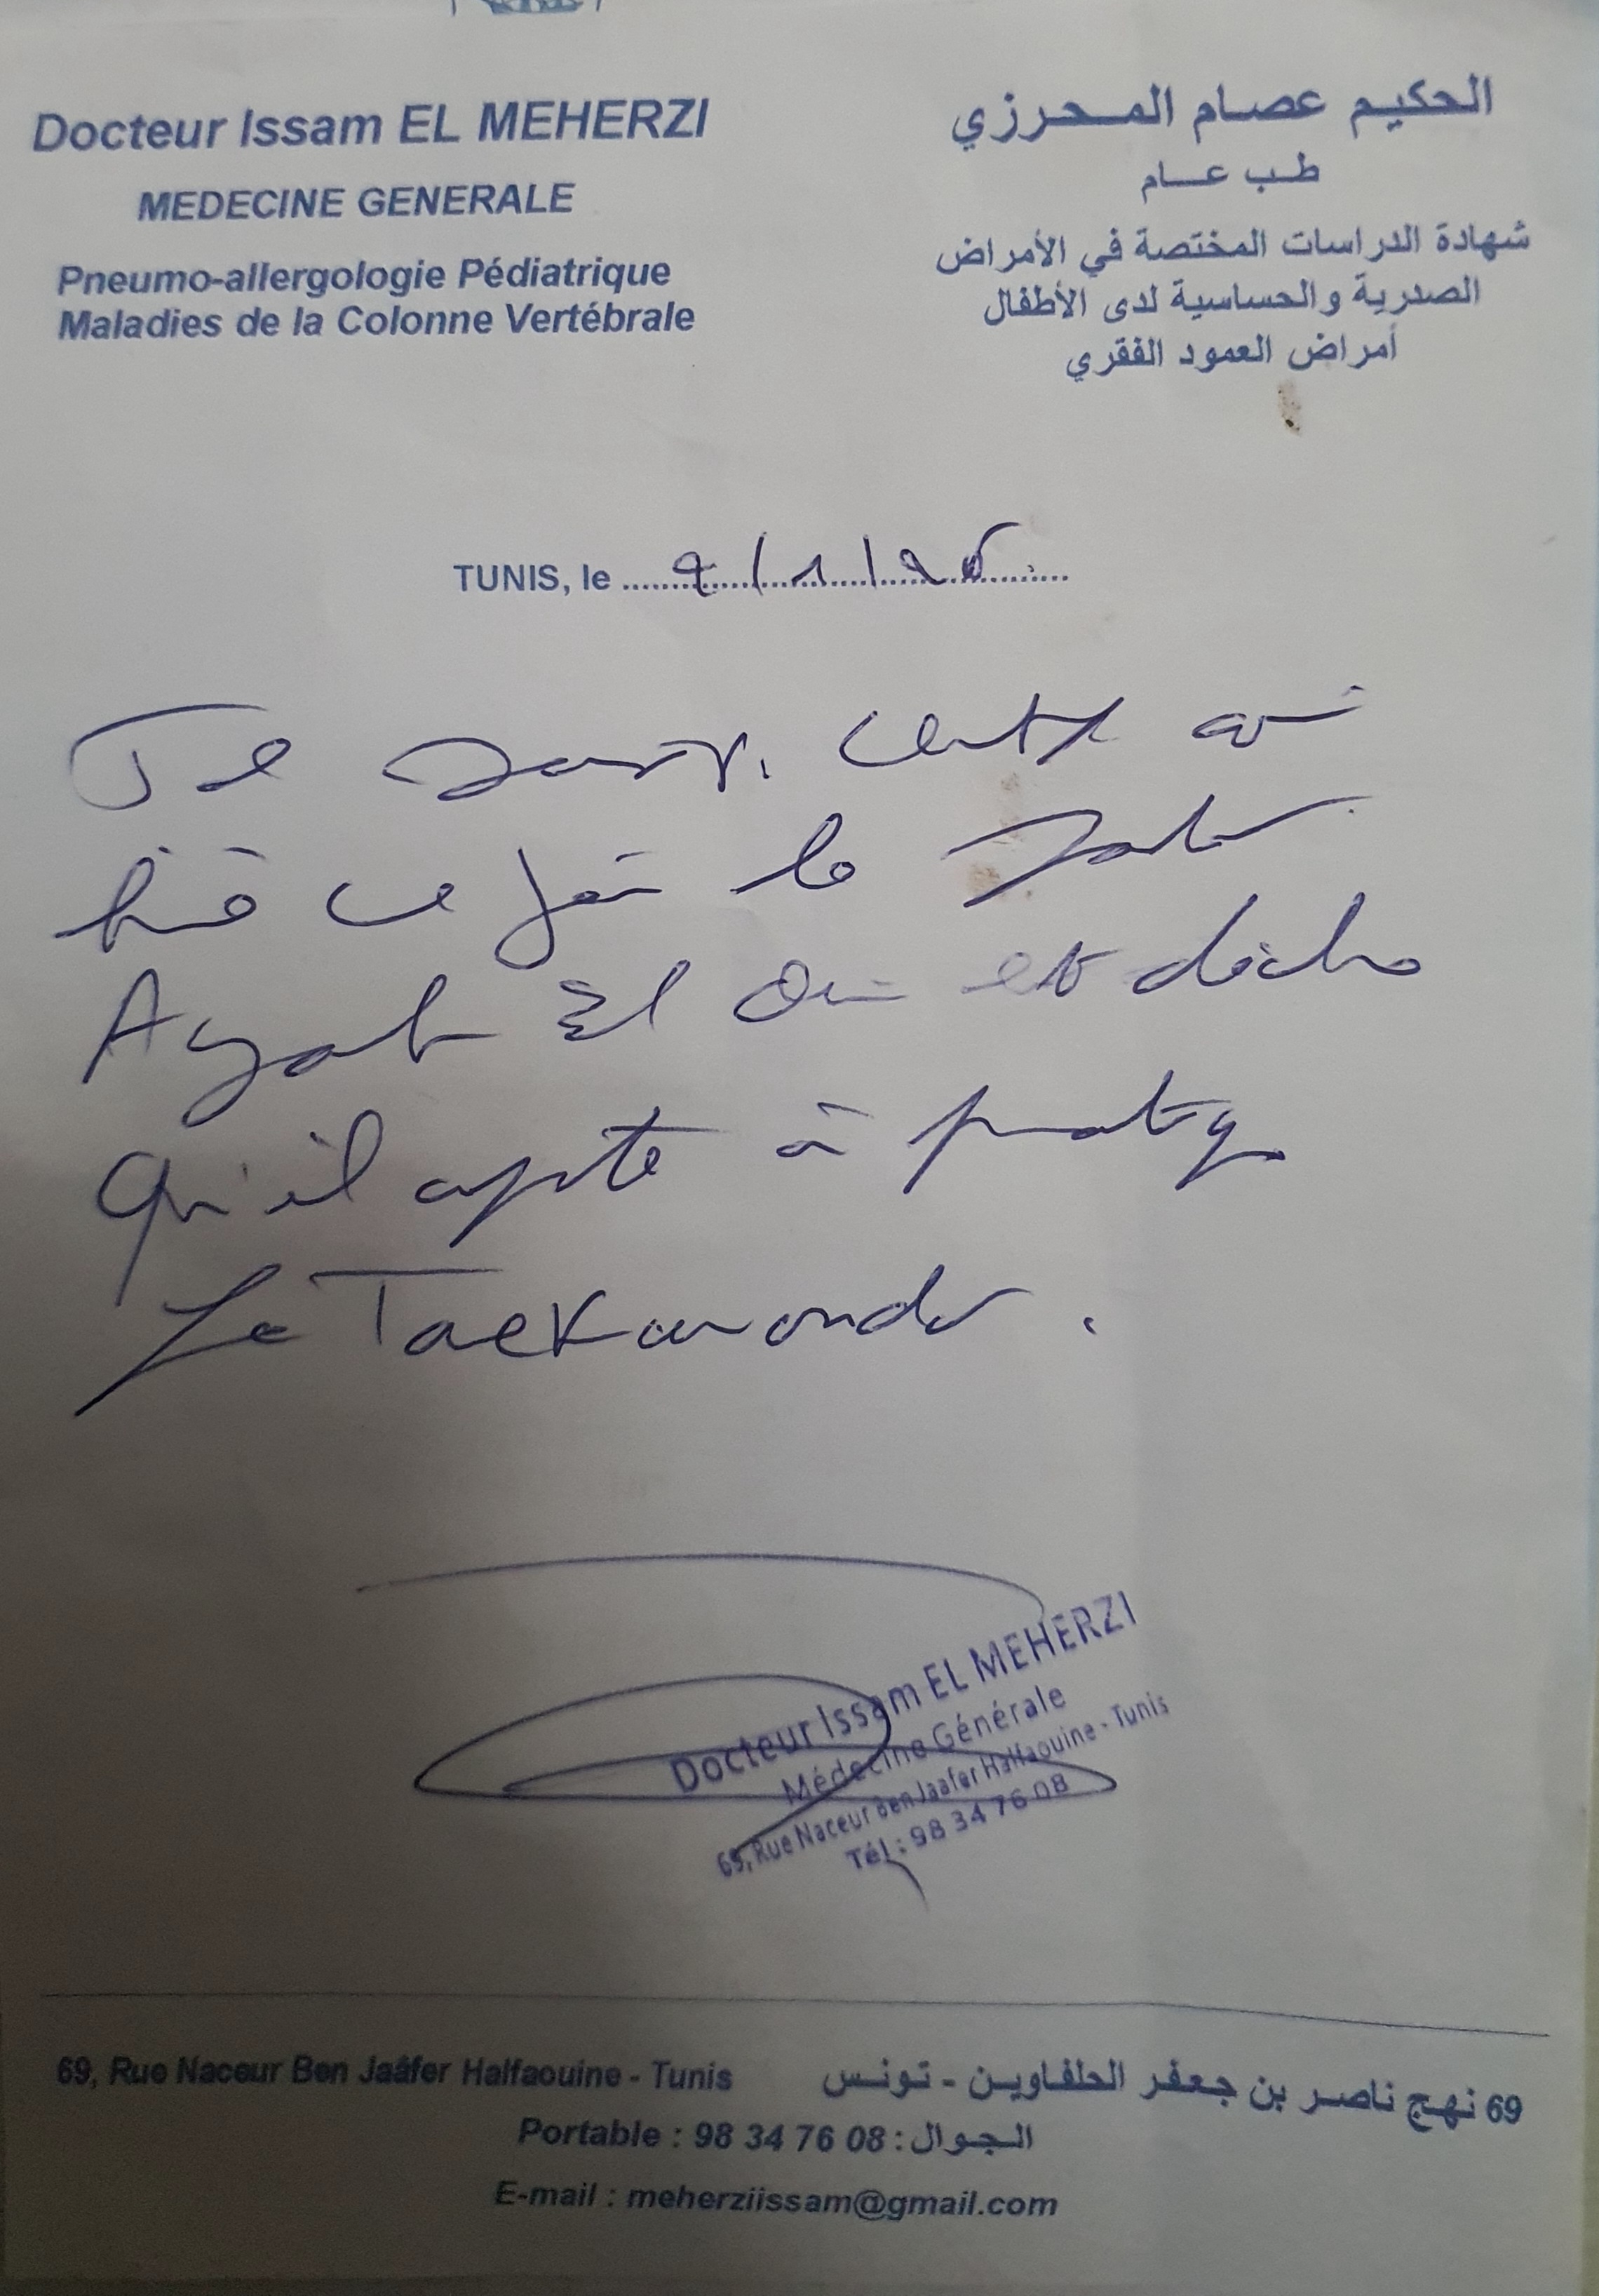 Docteur Issam EL MEHERZI
MEDECINE GENERALE
Pneumo-allergologie Pédiatrique
Maladies de la Colonne Vertébrale
الحكيم عصام المحرزي
طب عام
شهادة الدراسات المختصة في الأمراض
الصدرية والحساسية لدى الأطفال
أمراض العمود الفقري
TUNIS, le
Je certifie avoir
ce jour le
Ayat El et déclare
Qu'il apte à pratiquer
Le Taekwondo.
Docteur Issam EL MEHERZI
Médecine Générale
69, Rue Naceur Ben Jaafer Halfaouine - Tunis
Tél : 98 34 76 08
69, Rue Naceur Ben Jaâfer Halfaouine - Tunis
69 نهج ناصر بن جعفر الحلفاوين - تونس
Portable : 98 34 76 08 : الجوال
E-mail : meherziissam@gmail.com